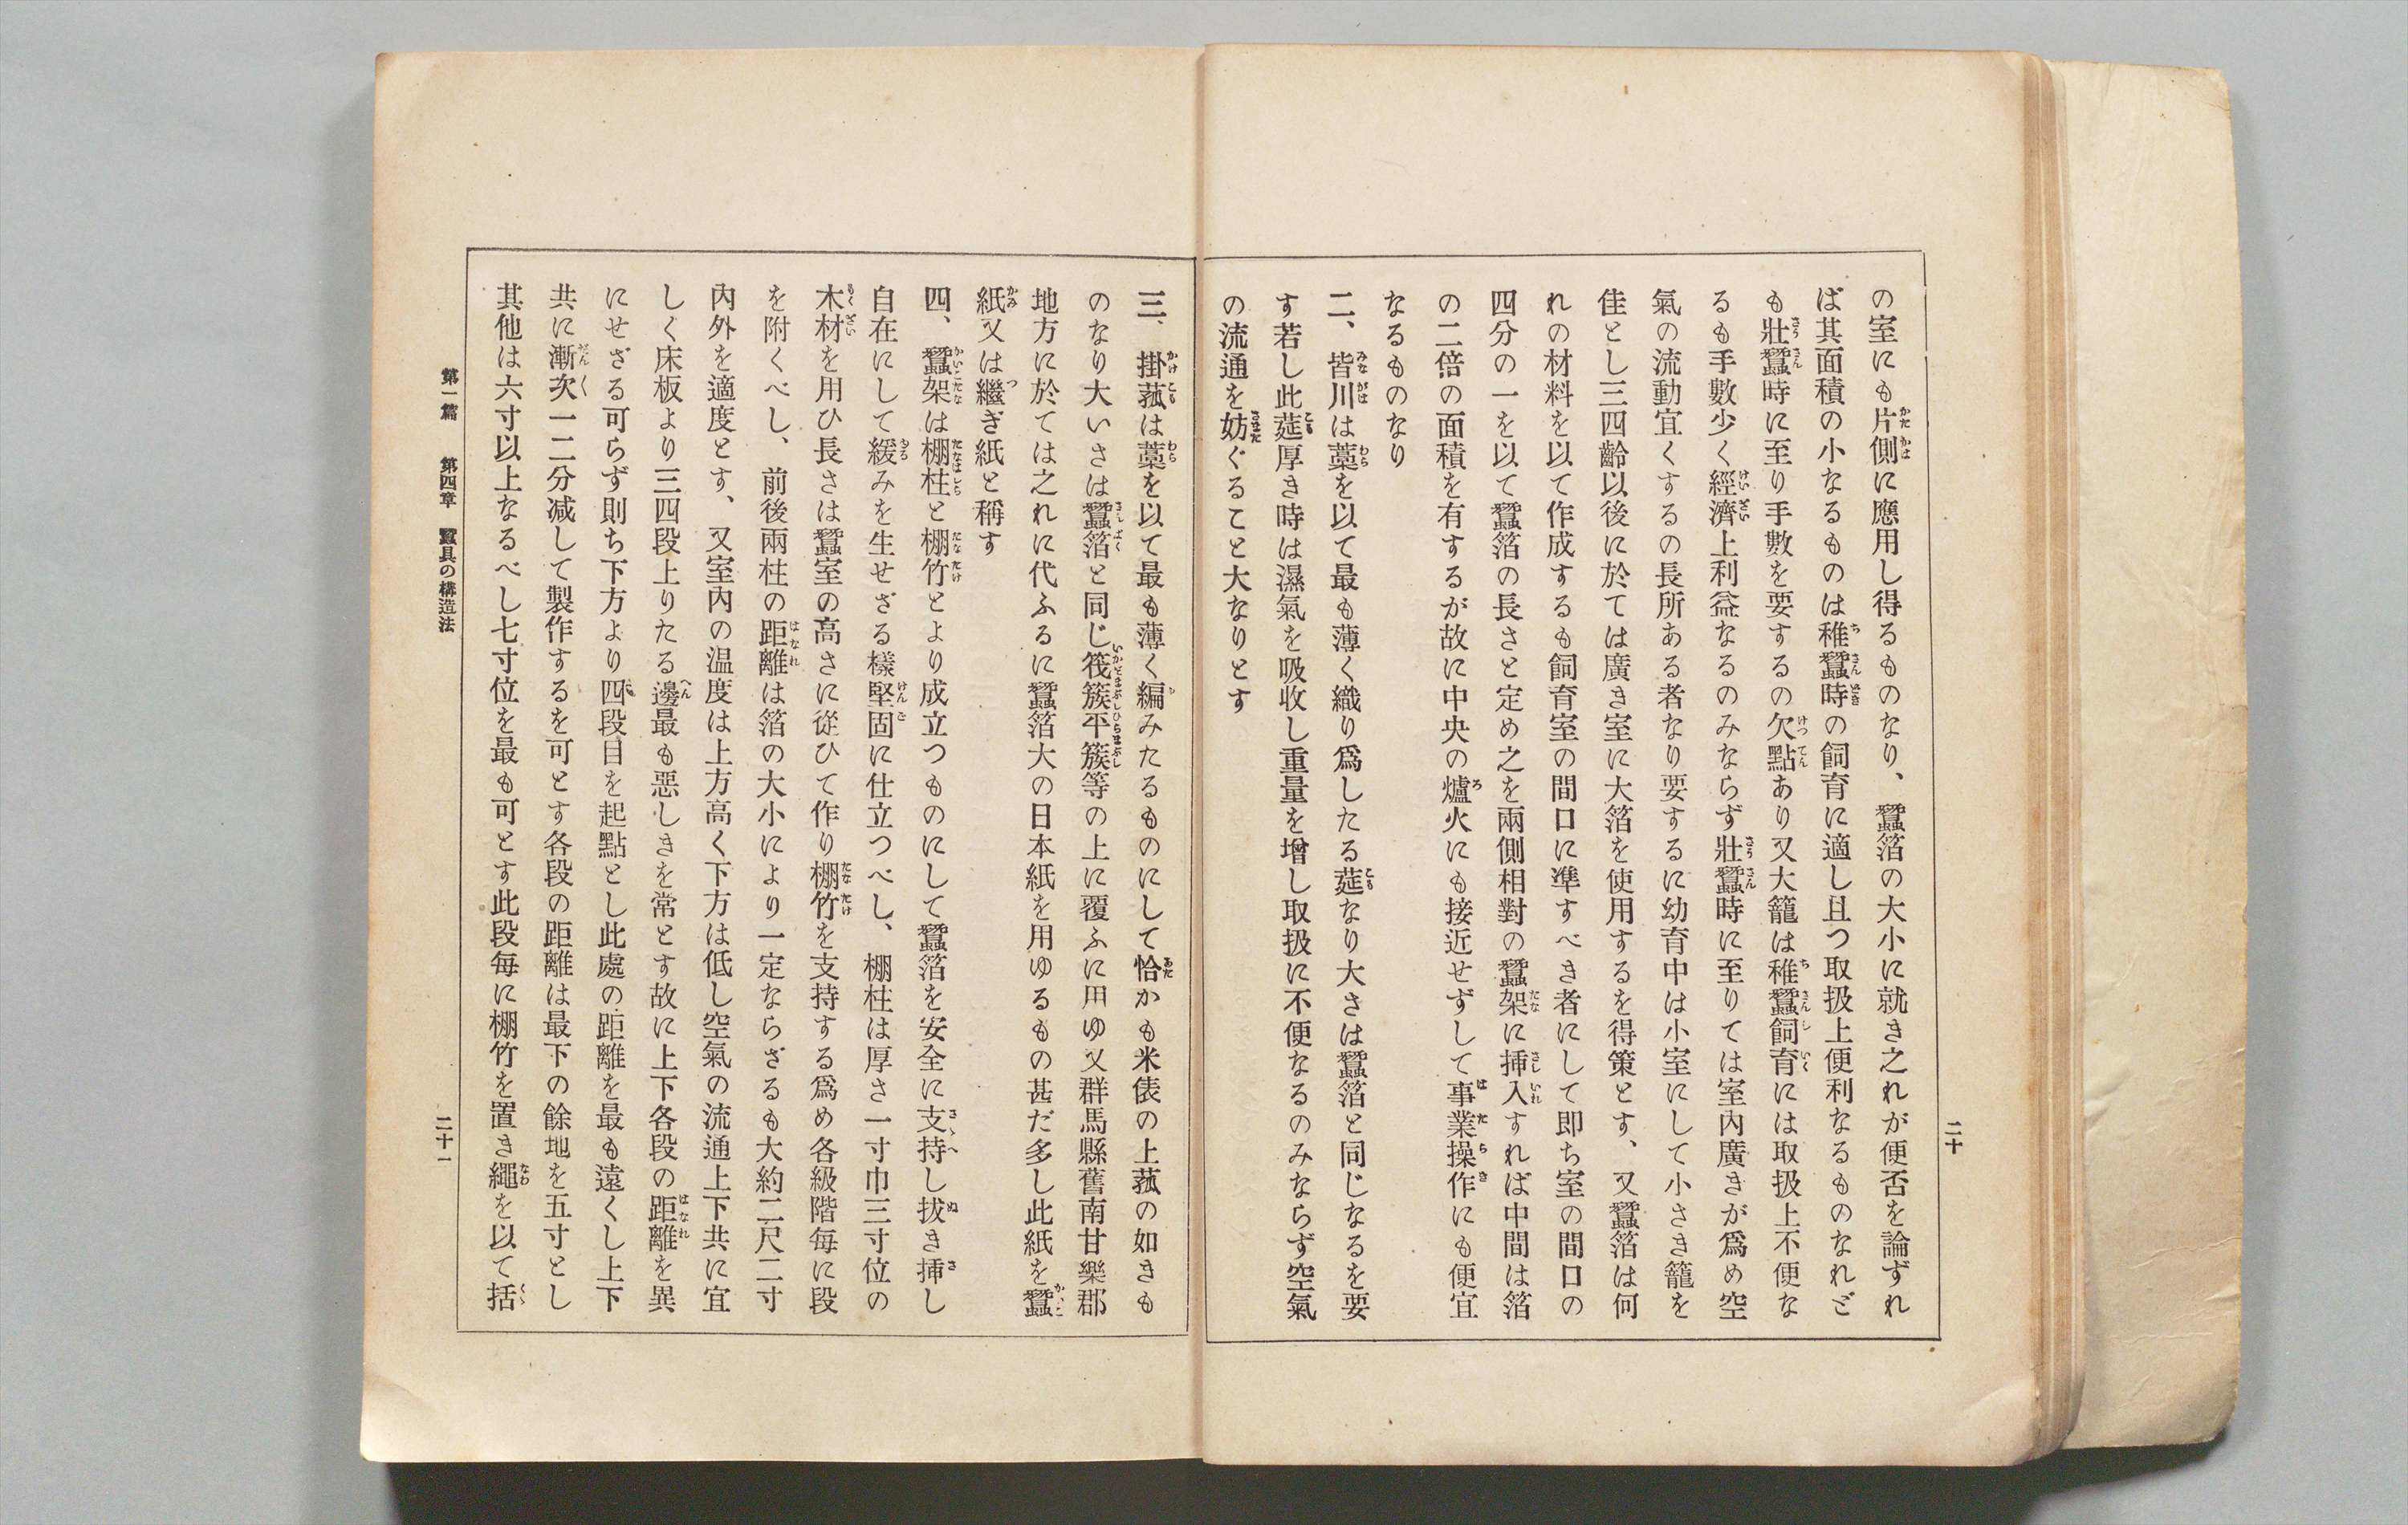 二十
の室にも片側に應用し得るものなり、蠶箔の大小に就き之れが便否を論ずれ
ば其面積の小なるものは稚蠶時の飼育に適し且つ取扱上便利なるものなれど
も壯蠶時に至り手數を要するの欠點あり又大籠は稚蠶飼育には取扱上不便な
るも手數少く經濟上利益なるのみならず壯蠶時に至りては室內廣きが爲め空
氣の流動宜くするの長所ある者なり要するに幼育中は小室にして小さき籠を
佳とし三四齡以後に於ては廣き室に大箔を使用するを得策とす、又蠶箔は何
れの材料を以て作成するも飼育室の間口に準すべき者にして即ち室の間口の
四分の一を以て蠶箔の長さと定め之を兩側相對の蠶架に挿入すれば中間は箔
の二倍の面積を有するが故に中央の爐火にも接近せずして事業操作にも便宜
なるものなり
二、皆川は藁を以て最も薄く織り爲したる莚なり大さは蠶箔と同じなるを要
す若し此莚厚き時は濕氣を吸收し重量を增し取扱に不便なるのみならず空氣
の流通を妨ぐること大なりとす
三、掛菰は藁を以て最も薄く編みたるものにして恰かも米俵の上菰の如きも
のなり大いさは蠶箔と同じ筏簇平簇等の上に覆ふに用ゆ又群馬縣舊南甘樂郡
地方に於ては之れに代ふるに蠶箔大の日本紙を用ゆるもの甚だ多し此紙を蠶
紙又は繼ぎ紙と稱す
四、蠶架は棚柱と棚竹とより成立つものにして蠶箔を安全に支持し拔き挿し
自在にして緩みを生せざる樣堅固に仕立つべし、棚柱は厚さ一寸巾三寸位の
木材を用ひ長さは蠶室の高さに從ひて作り棚竹を支持する爲め各級階每に段
を附くべし、前後兩柱の距離は箔の大小により一定ならざるも大約二尺二寸
內外を適度とす、又室內の温度は上方高く下方は低し空氣の流通上下共に宜
しく床板より三四段上りたる邊最も惡しきを常とす故に上下各段の距離を異
にせざる可らず則ち下方より四段目を起點とし此處の距離を最も遠くし上下
共に漸次一二分減して製作するを可とす各段の距離は最下の餘地を五寸とし
其他は六寸以上なるべし七寸位を最も可とす此段每に棚竹を置き繩を以て括
第一篇 第四章 蠶具の構造法 二十一